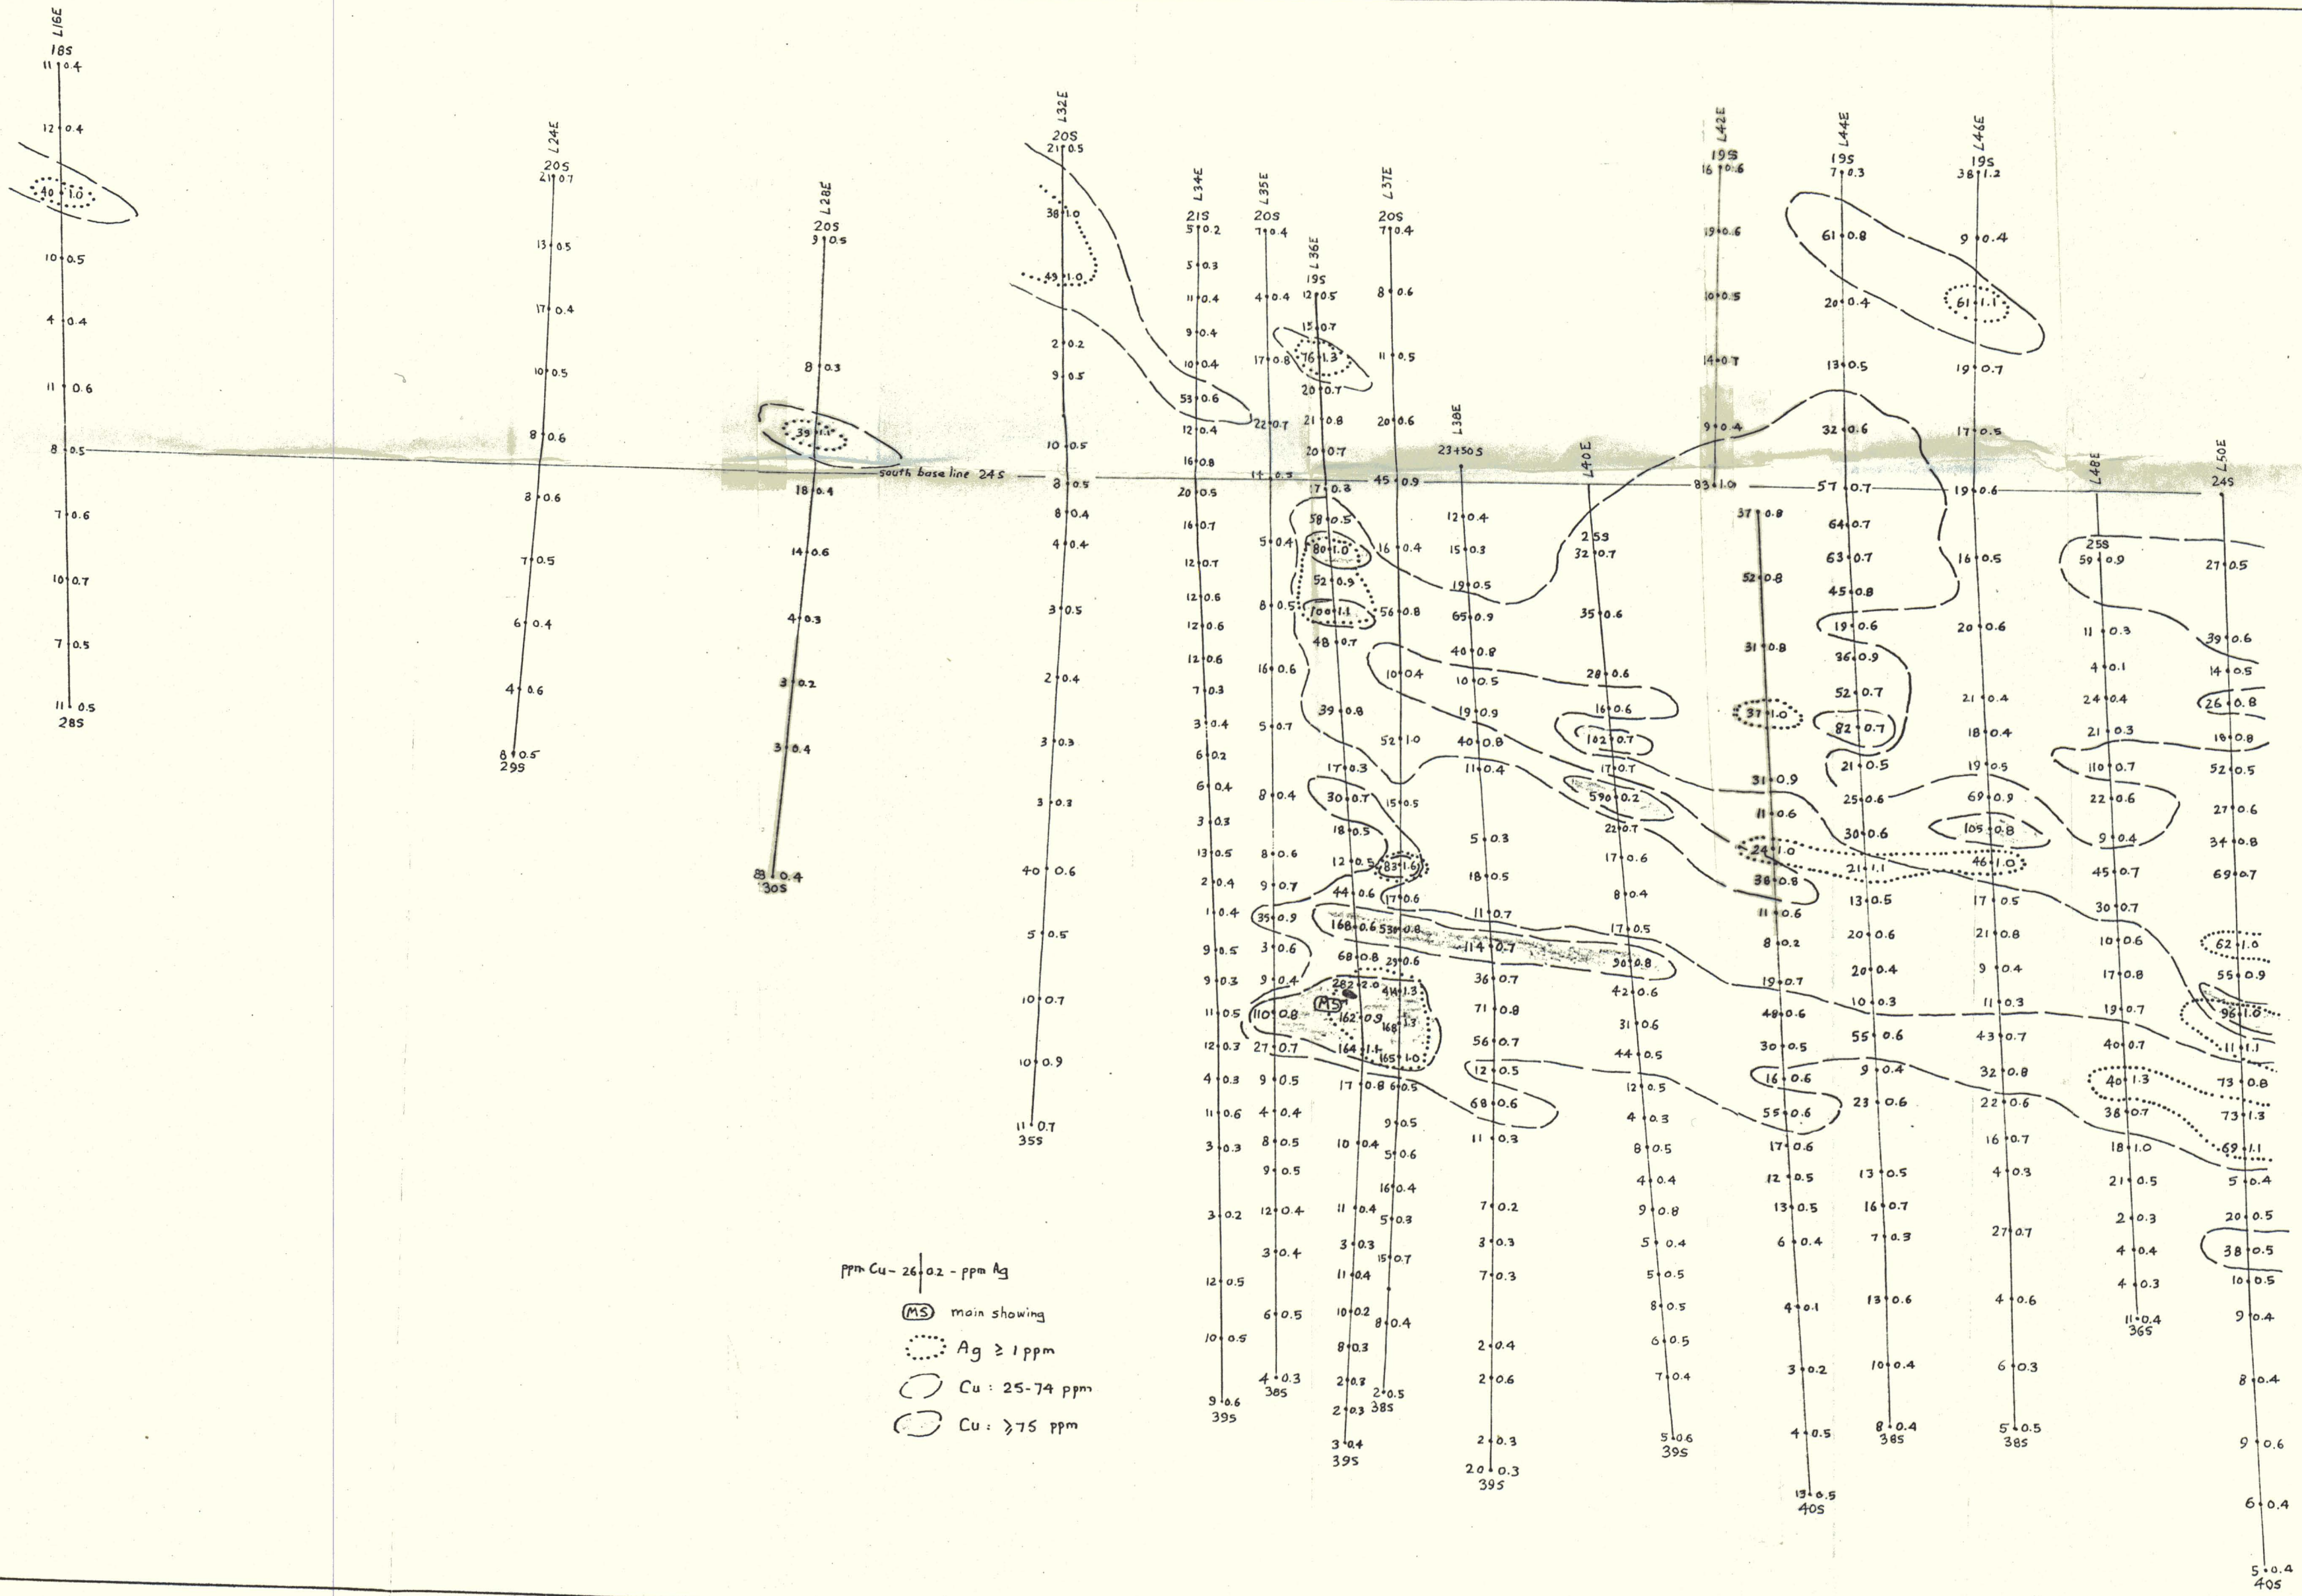 L16E
18S
11 0.4
12 0.4
40 1.0
10 0.5
4 0.4
11 0.6
8 0.5
7 0.6
10 0.7
7 0.5
11 0.5
28S
L24E
20S
21 0.7
13 0.5
17 0.4
10 0.5
8 0.6
8 0.6
7 0.5
6 0.4
4 0.6
8 0.5
29S
L28E
20S
9 0.5
8 0.3
39 1.1
18 0.4
14 0.6
4 0.3
3 0.2
3 0.4
0.4
30S
south base line 24S
L32E
20S
21 0.5
38 1.0
49 1.0
2 0.2
9 0.5
10 0.5
8 0.5
8 0.4
4 0.4
3 0.5
2 0.4
3 0.3
3 0.3
40 0.6
5 0.5
10 0.7
10 0.9
11 0.7
35S
L34E
21S
5 0.2
5 0.3
11 0.4
9 0.4
10 0.4
53 0.6
12 0.4
16 0.8
20 0.5
16 0.7
12 0.7
12 0.6
12 0.6
12 0.6
7 0.3
3 0.4
6 0.2
6 0.4
3 0.3
13 0.5
2 0.4
1 0.4
9 0.5
9 0.3
11 0.5
12 0.3
4 0.3
11 0.6
3 0.3
3 0.2
12 0.5
10 0.5
9 0.6
39S
L35E
20S
7 0.4
4 0.4
17 0.8
22 0.7
14 0.5
5 0.4
8 0.5
16 0.6
5 0.7
8 0.4
8 0.6
9 0.7
35 0.9
3 0.6
9 0.4
110 0.8
27 0.7
9 0.5
4 0.4
8 0.5
9 0.5
12 0.4
3 0.4
6 0.5
4 0.3
38S
L36E
19S
12 0.5
15 0.7
76 1.3
20 0.7
21 0.8
20 0.7
17 0.3
58 0.5
80 1.0
52 0.9
100 1.1
48 0.7
39 0.8
17 0.3
30 0.7
18 0.5
12 0.5
44 0.6
168 0.6
68 0.8
282 2.0
MS
162 0.9
164 1.1
17 0.8
10 0.4
11 0.4
3 0.3
11 0.4
10 0.2
8 0.3
2 0.3
2 0.3
3 0.4
39S
L37E
20S
7 0.4
8 0.6
11 0.5
20 0.6
45 0.9
16 0.4
56 0.8
10 0.4
52 1.0
15 0.5
83 1.6
17 0.6
530 0.8
29 0.6
414 1.3
168 1.3
165 1.0
6 0.5
9 0.5
5 0.6
16 0.4
5 0.3
15 0.7
8 0.4
2 0.5
38S
L38E
23+50S
12 0.4
15 0.3
19 0.5
65 0.9
40 0.8
10 0.5
19 0.9
40 0.8
11 0.4
5 0.3
18 0.5
11 0.7
114 0.7
36 0.7
71 0.8
56 0.7
12 0.5
68 0.6
11 0.3
7 0.2
3 0.3
7 0.3
2 0.4
2 0.6
2 0.3
20 0.3
39S
L40E
25S
32 0.7
35 0.6
28 0.6
16 0.6
102 0.7
17 0.7
590 0.2
22 0.7
17 0.6
8 0.4
17 0.5
90 0.8
42 0.6
31 0.6
44 0.5
12 0.5
4 0.3
8 0.5
4 0.4
9 0.8
5 0.4
5 0.5
8 0.5
6 0.5
7 0.4
5 0.6
39S
L42E
19S
16 0.6
19 0.6
10 0.5
14 0.7
9 0.4
83 1.0
37 0.8
52 0.8
31 0.8
37 1.0
31 0.9
11 0.6
24 1.0
38 0.8
11 0.6
8 0.2
19 0.7
48 0.6
30 0.5
16 0.6
55 0.6
17 0.6
12 0.5
13 0.5
6 0.4
4 0.1
3 0.2
4 0.5
13 0.5
40S
L44E
19S
7 0.3
61 0.8
20 0.4
13 0.5
32 0.6
57 0.7
64 0.7
63 0.7
45 0.8
19 0.6
36 0.9
52 0.7
82 0.7
21 0.5
25 0.6
30 0.6
21 1.1
13 0.5
20 0.6
20 0.4
10 0.3
55 0.6
9 0.4
23 0.6
13 0.5
16 0.7
7 0.3
13 0.6
10 0.4
8 0.4
38S
L46E
19S
38 1.2
9 0.4
61 1.1
19 0.7
17 0.5
19 0.6
16 0.5
20 0.6
21 0.4
18 0.4
19 0.5
69 0.9
105 0.8
46 1.0
17 0.5
21 0.8
9 0.4
11 0.3
43 0.7
32 0.8
22 0.6
16 0.7
4 0.3
27 0.7
4 0.6
6 0.3
5 0.5
38S
L48E
25S
59 0.9
11 0.3
4 0.1
24 0.4
21 0.3
110 0.7
22 0.6
9 0.4
45 0.7
30 0.7
10 0.6
17 0.8
19 0.7
40 0.7
40 1.3
38 0.7
18 1.0
21 0.5
2 0.3
4 0.4
4 0.3
11 0.4
36S
L50E
24S
27 0.5
39 0.6
14 0.5
26 0.8
18 0.8
52 0.5
27 0.6
34 0.8
69 0.7
62 1.0
55 0.9
96 1.0
11 1.1
73 0.8
73 1.3
69 1.1
5 0.4
20 0.5
38 0.5
10 0.5
9 0.4
8 0.4
9 0.6
6 0.4
5 0.4
40S
ppm Cu - 26 0.2 - ppm Ag
MS main showing
Ag ≥ 1 ppm
Cu : 25-74 ppm
Cu : ≥75 ppm